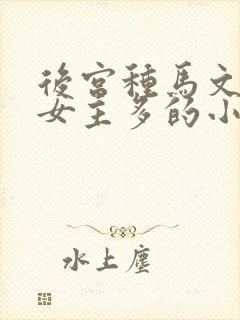 後宮種馬文
女主多的小
水上塵